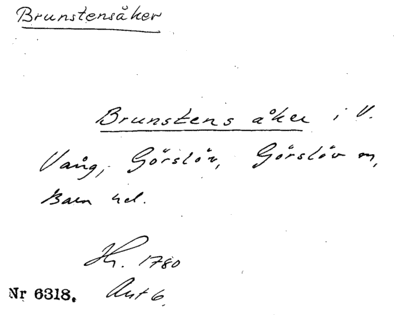 Brunstensåker
Brunstens åker i V.
Vång, Görslöv, Görslöv m,
Bara hd.
H. 1780
Nr 6318. Akt 6.